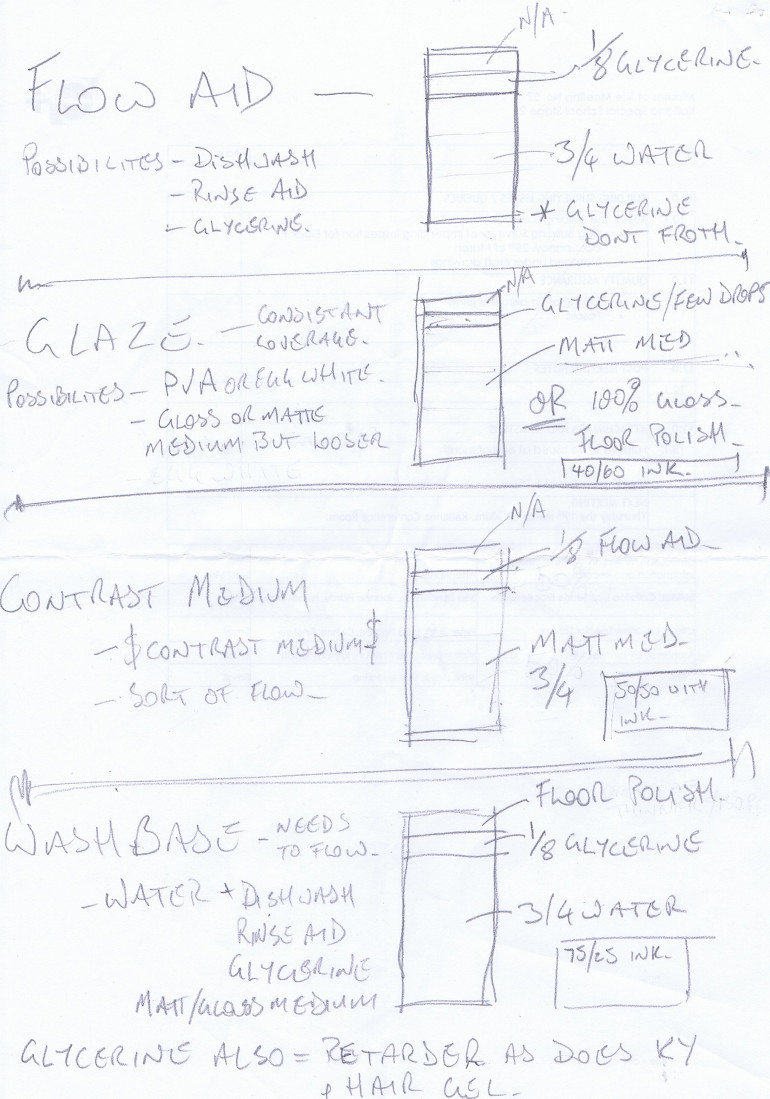 N/A-
FLOW AID —
1/8 GLYCERINE.
POSSIBILITES - DISHWASH
- RINSE AID
- GLYCERINE.
3/4 WATER
* GLYCERINE
DONT FROTH.
N/A
GLAZE. - CONSISTANT
COVERAGE.
GLYCERINE/FEW DROPS
POSSIBILITES - PVA OR EGG WHITE.
- GLOSS OR MATTE
MEDIUM BUT LOOSER
MATT MED
OR 100% GLOSS-
FLOOR POLISH.
40/60 INK.
N/A
1/8 FLOW AID-
CONTRAST MEDIUM
- $ CONTRAST MEDIUM $
- SORT OF FLOW-
MATT MED-
3/4
50/50 WITH
INK-
FLOOR POLISH.
WASH BASE - NEEDS
TO FLOW-
1/8 GLYCERINE
- WATER + DISHWASH
RINSE AID
GLYCERINE
MATT/GLOSS MEDIUM
3/4 WATER
75/25 INK-
GLYCERINE ALSO = RETARDER AS DOES KY
+ HAIR GEL-